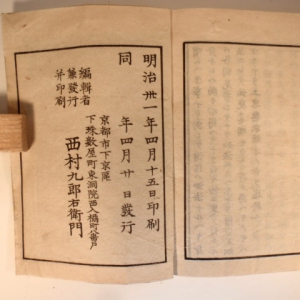 明治卅一年四月十五日印刷
同　　年四月廿　日發行
京都市下京區
下珠數屋町東洞院西入橘町八番戸
編輯者
兼發行
并印刷
西村九郎右衛門